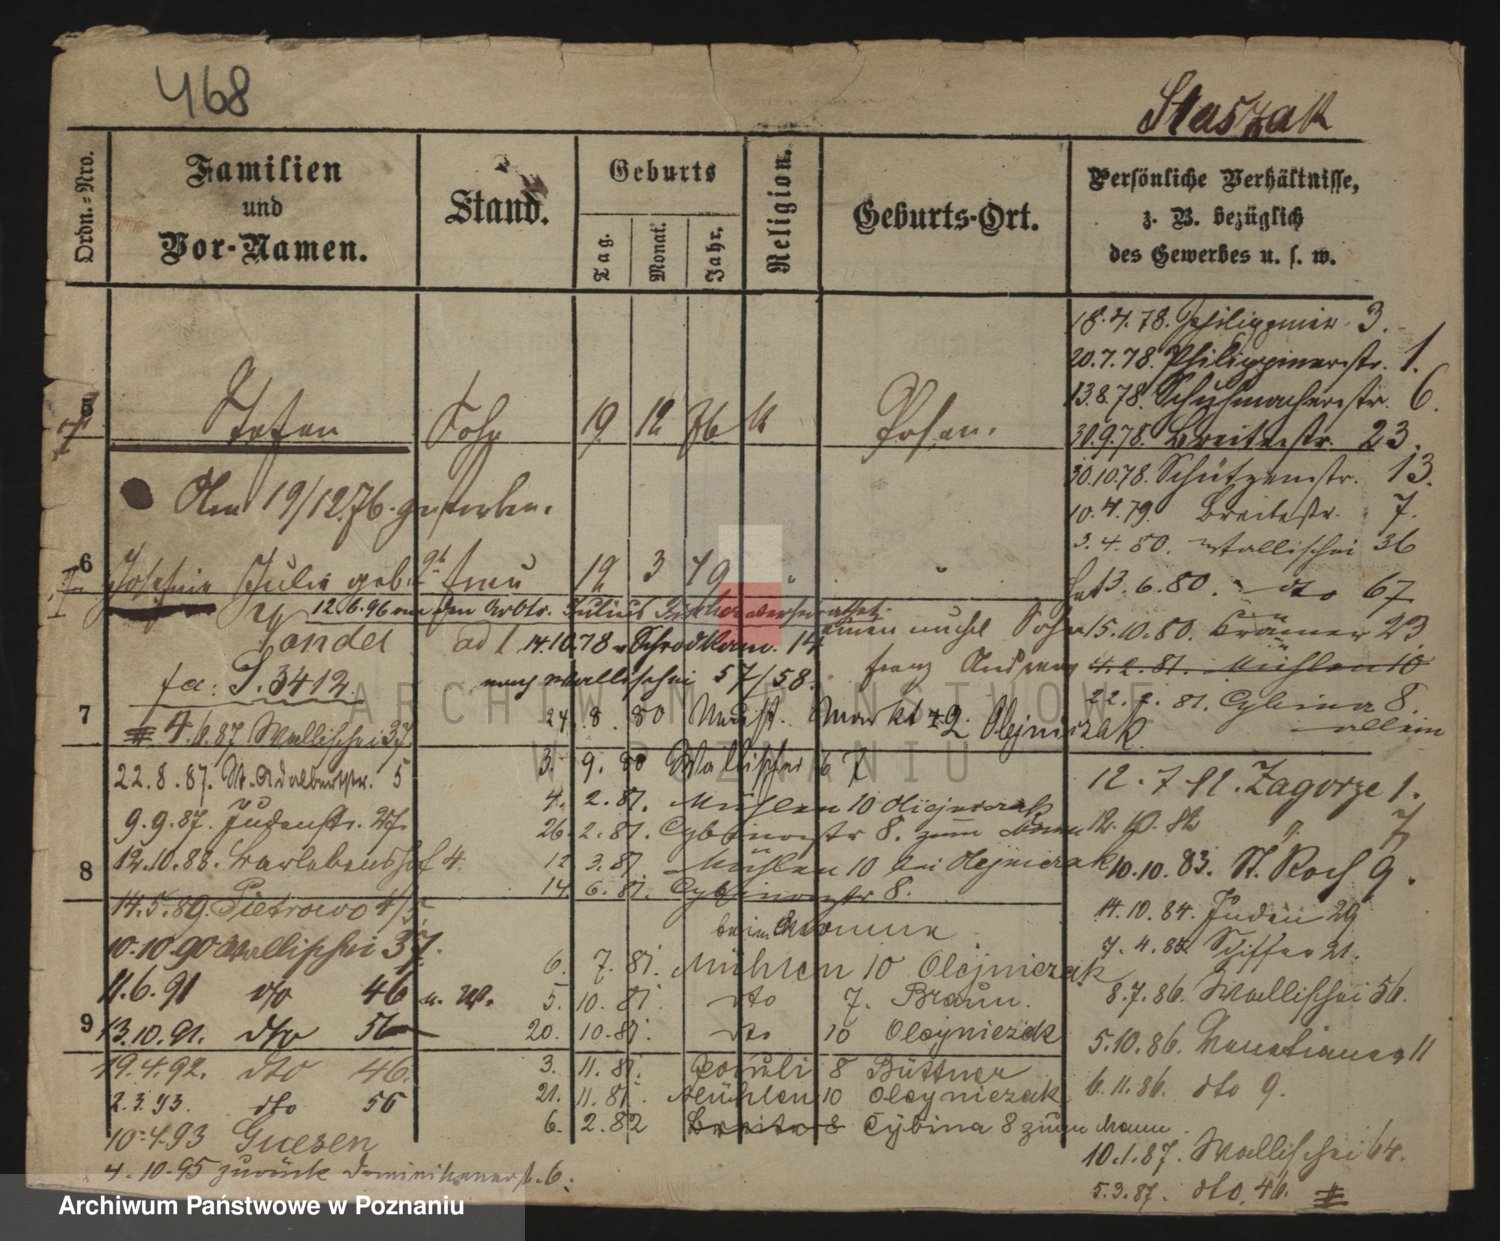 468
Staszak
Ordn.-Nro.
Familien
und
Vor-Namen.
Stand.
Geburts
Tag.
Monat.
Jahr.
Religion.
Geburts-Ort.
Persönliche Verhältnisse,
z. B. bezüglich
des Gewerbes u. s. w.
18.4.78. Philippiner 3.
20.7.78. Philippinerstr. 1.
13.8.78. Schuhmacherstr. 6.
30.9.78. Breitestr. 23.
30.10.78. Schützenstr. 13.
10.4.79. Breitestr. 7.
3.4.80. Wallischei 36
13.6.80. dto 67
15.10.80. Krämer 23
4.2.81. Mühlen 10
22.2.81. Cybina 8.
allein
5
Stefan Sohn 19 12 76 k Posen.
Am 19/12.76. gestorben.
6
Josephine Julie geb. frau 12 3 49 " "
12.6.96 den Arbtr. Julius verheirathet.
ad 1 14.10.78 Schrodkam. 14
nach Wallischei 57/58.
einen unehel Sohn
franz Andreas
fa: S. 3412
7
4.6.87 Wallischei 37
24. 8. 80 Neust. Markt 2. Olejniczak
3. 9. 80 Wallischei 67
22.8.87. St. Adalbertstr. 5
4. 2. 81. Mühlen 10 Olejniczak
9.9.87. Judenstr. 27.
26. 2. 81. Cybinastr 8. zum Mann
12.10.88. Barlebenshof 4.
12 3. 81. Mühlen 10 bei Olejniczak
8
14. 6. 81. Cybinastr 8.
14.5.89. Pietrowo 4/5.
beim Manne
10.10.90 Wallischei 37.
6. 7. 81. Mühlen 10 Olejniczak
11.6.91 dto 46 u. W.
5. 10. 81. dto 7. Braun.
9
13.10.91. dto 56
20. 10. 81. dto 10 Olejniczak
19.4.92. dto 46.
3. 11. 81. 8 Büttner
2.3.93. dto 56
21. 11. 81. Mühlen 10 Olejniczak
10.4.93 Gnesen
6. 2. 82 Breite 8 Cybina 8 zum Mann
4.10.95 zurück Dominikanerst. 6.
12.7.81. Zagorze 1.
12.10.82 7
10.10.83. St. Roch 9.
14.10.84. Juden 29
7.4.85. Schiffer 21.
8.7.86. Wallischei 56.
5.10.86. Venetianer 11
6.11.86. dto 9.
10.1.87. Wallischei 64.
5.3.87. dto. 46.
ARCHIWUM PAŃSTWOWE
W POZNANIU
Archiwum Państwowe w Poznaniu